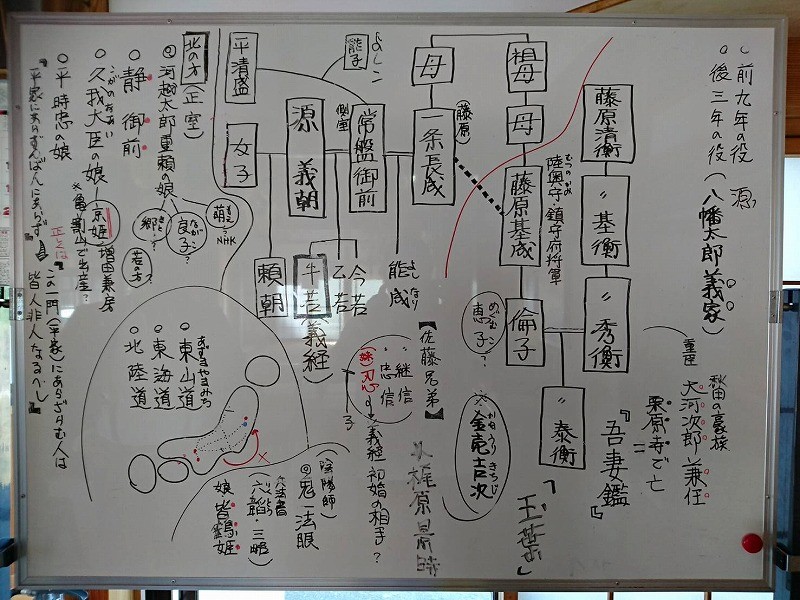 前九年の役 源
後三年の役(八幡太郎義家)
秋田の豪族
重臣 大河次郎兼任
栗原寺で亡
『吾妻鏡』
『玉葉』
藤原清衡
〃基衡
〃秀衡
〃泰衡
祖母
母
藤原基成
むつのかみ
陸奥守・鎮守府将軍
倫子
めぐむこ
恵子?
母
(藤原)
一条長成
よしなり
能成
よしこ
能子
常盤御前
側室
今若
乙若
牛若(義経)
源義朝
頼朝
平清盛
女子
【佐藤兄弟】
継信
忠信
(妹)
義経初婚の相手?
※かねうりきちじ
金売吉次
梶原景時
北の方(正室)
河越太郎重頼の娘
萌?NHK
良子?
郷?
若の方?
静御前
こがのおおあい
久我大臣の娘
京姫
増田兼房
※亀割山で出産?
平時忠の娘
『平家にあらずんば人にあらず』
正しくは
『この一門(平家)にあらざらむ人は
皆人非人なるべし』
あずまやまみち
東山道
東海道
北陸道
陰陽師
鬼一法眼
兵法書
りくとう
六韜・三略
娘 皆鶴姫